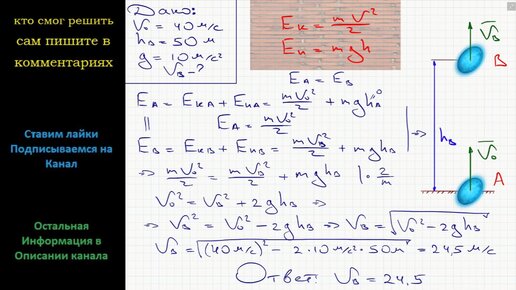 кто смог решить
сам пишите в
комментариях
Ставим лайки
Подписываемся на
Канал
Остальная
Информация в
Описании канала
Дано:
V₀ = 40 м/с
h_B = 50 м
g = 10 м/с²
V_B - ?
E_к = mV²/2
E_п = mgh
E_A = E_B
E_A = E_кA + E_пA = mV₀²/2 + mgh_A⁰
|| E_A = mV₀²/2
E_B = E_кB + E_пB = mV_B²/2 + mgh_B
⇒ mV₀²/2 = mV_B²/2 + mgh_B | · 2/m
V₀² = V_B² + 2gh_B ⇒
⇒ V_B² = V₀² - 2gh_B ⇒ V_B = √(V₀² - 2gh_B)
V_B = √((40 м/с)² - 2·10 м/с²·50 м) = 24,5 м/с
Ответ: V_B = 24,5
V_B
B
h_B
V₀
A